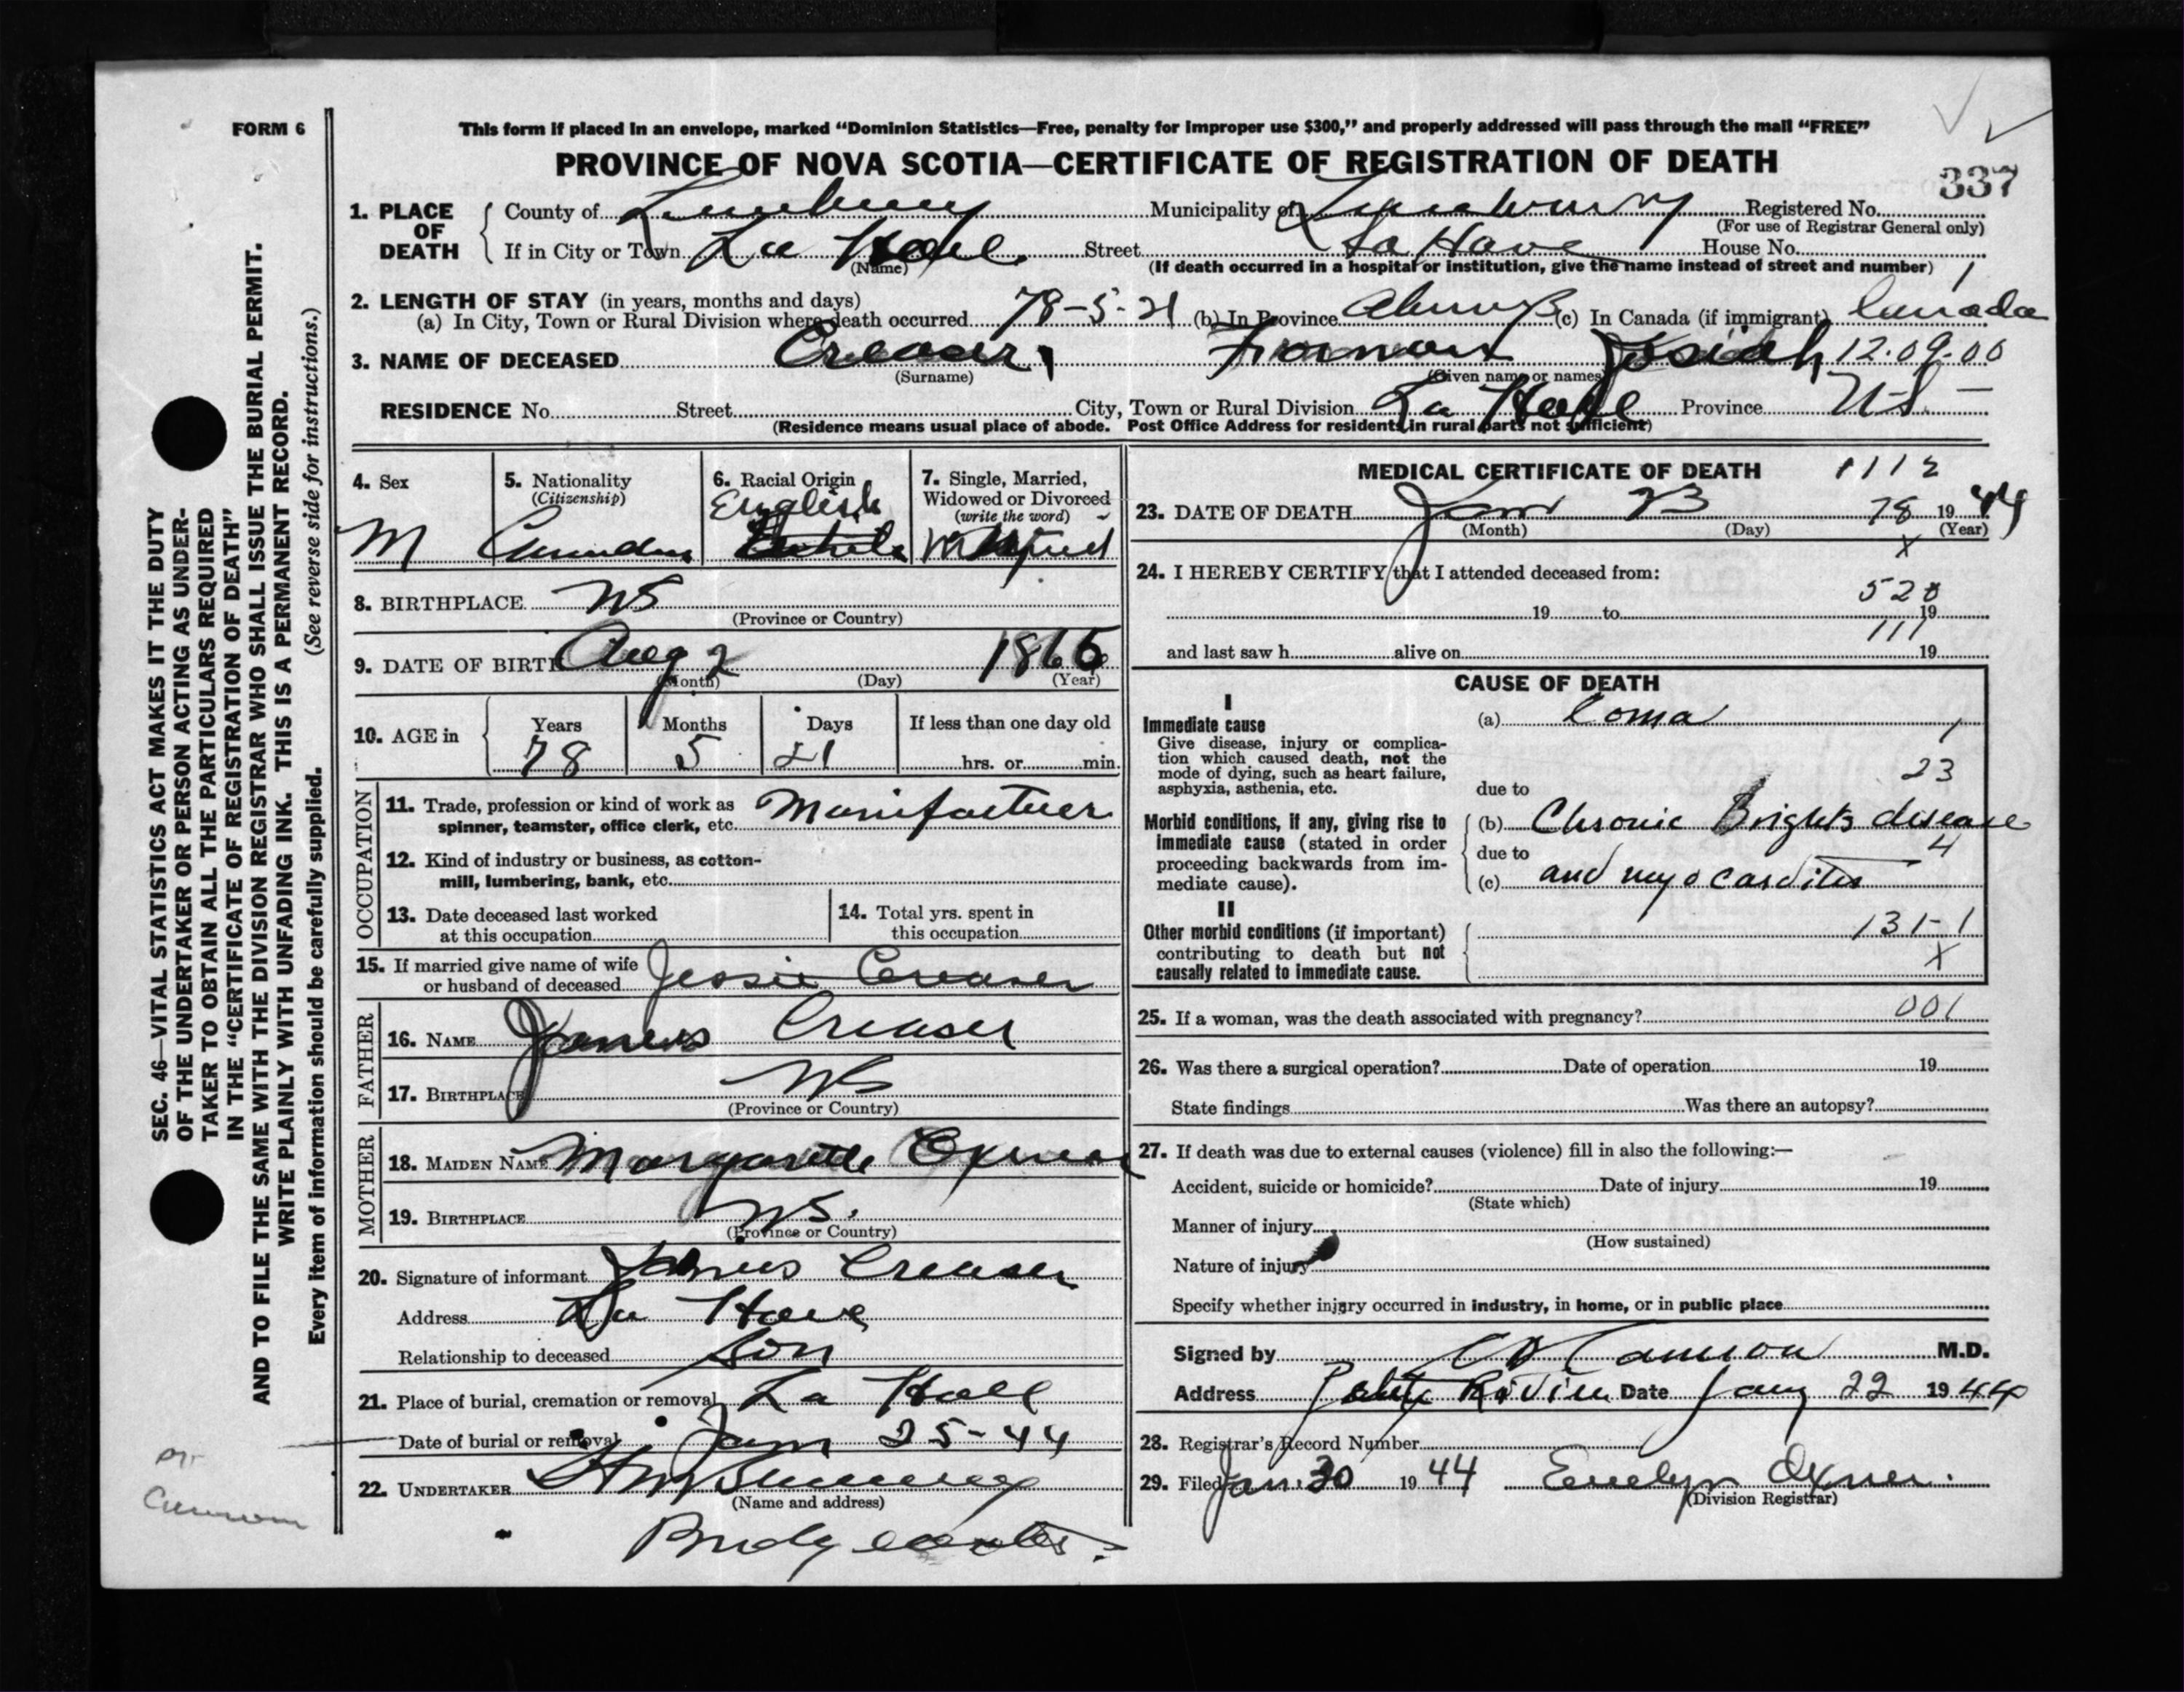 FORM 6
This form if placed in an envelope, marked "Dominion Statistics—Free, penalty for improper use $300," and properly addressed will pass through the mail "FREE"
PROVINCE OF NOVA SCOTIA—CERTIFICATE OF REGISTRATION OF DEATH
337
1. PLACE OF DEATH
County of Lunenburg Municipality of Lunenburg Registered No.
(For use of Registrar General only)
If in City or Town La Have Street La Have House No.
(Name)
(If death occurred in a hospital or institution, give the name instead of street and number) 1
2. LENGTH OF STAY (in years, months and days)
(a) In City, Town or Rural Division where death occurred 78-5-21 (b) In Province Always (c) In Canada (if immigrant) Canada
3. NAME OF DECEASED Creaser, Josiah 12.09.00
(Surname) (Given name or names)
RESIDENCE No. Street City, Town or Rural Division La Have Province N-S-
(Residence means usual place of abode. Post Office Address for residents in rural parts not sufficient)
4. Sex
M
5. Nationality
(Citizenship)
Canadian
6. Racial Origin
English
White
7. Single, Married,
Widowed or Divorced
(write the word)
Married
8. BIRTHPLACE NS
(Province or Country)
9. DATE OF BIRTH Aug 2 1865
(Month) (Day) (Year)
10. AGE in
Years Months Days If less than one day old
78 5 21 hrs. or min.
OCCUPATION
11. Trade, profession or kind of work as
spinner, teamster, office clerk, etc. Manifactuer
12. Kind of industry or business, as cotton-
mill, lumbering, bank, etc.
13. Date deceased last worked
at this occupation
14. Total yrs. spent in
this occupation
15. If married give name of wife
or husband of deceased Jessie Creaser
FATHER
16. NAME James Creaser
17. BIRTHPLACE NS
(Province or Country)
MOTHER
18. MAIDEN NAME Margarette Oxner
19. BIRTHPLACE NS.
(Province or Country)
20. Signature of informant James Creaser
Address La Have
Relationship to deceased Son
21. Place of burial, cremation or removal La Have
Date of burial or removal Jan 25-44
22. UNDERTAKER
(Name and address)
Bridgewater.
MEDICAL CERTIFICATE OF DEATH 1112
23. DATE OF DEATH Jan 23 78 1944
(Month) (Day) (Year)
x
24. I HEREBY CERTIFY that I attended deceased from:
520
19 to 19
111
and last saw h alive on 19
CAUSE OF DEATH
I
Immediate cause
Give disease, injury or complica-
tion which caused death, not the
mode of dying, such as heart failure,
asphyxia, asthenia, etc.
(a) Coma 1
23
due to
Morbid conditions, if any, giving rise to
immediate cause (stated in order
proceeding backwards from im-
mediate cause).
(b) Chronic Brights disease
due to 4
(c) and myocarditis
II
Other morbid conditions (if important)
contributing to death but not
causally related to immediate cause.
131-1
x
25. If a woman, was the death associated with pregnancy? 001
26. Was there a surgical operation? Date of operation 19
State findings Was there an autopsy?
27. If death was due to external causes (violence) fill in also the following:—
Accident, suicide or homicide? Date of injury 19
(State which)
Manner of injury
(How sustained)
Nature of injury
Specify whether injury occurred in industry, in home, or in public place
Signed by M.D.
Address Petite Riviere Date Jany 22 1944
28. Registrar's Record Number
29. Filed Jan. 30 1944 Evelyn Oxner.
(Division Registrar)
SEC. 46—VITAL STATISTICS ACT MAKES IT THE DUTY
OF THE UNDERTAKER OR PERSON ACTING AS UNDER-
TAKER TO OBTAIN ALL THE PARTICULARS REQUIRED
IN THE "CERTIFICATE OF REGISTRATION OF DEATH"
AND TO FILE THE SAME WITH THE DIVISION REGISTRAR WHO SHALL ISSUE THE BURIAL PERMIT.
WRITE PLAINLY WITH UNFADING INK. THIS IS A PERMANENT RECORD.
Every item of information should be carefully supplied. (See reverse side for instructions.)